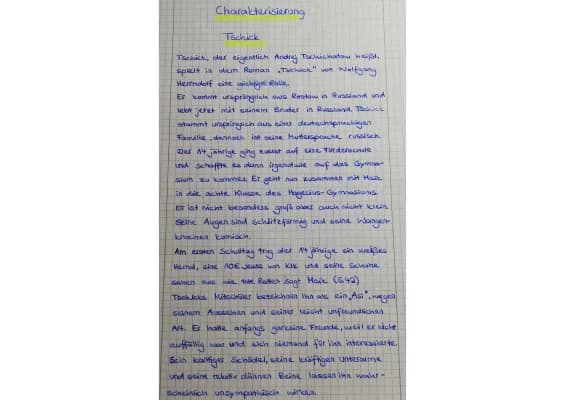 Charakterisierung
Tschick
Tschick, der eigentlich Andrej Tschichatow heißt,
spielt in dem Roman „Tschick" von Wolfgang
Herrndorf eine wichtige Rolle.
Er kommt ursprünglich aus Rostow in Russland und
lebt jetzt mit seinem Bruder in Russland. Tschick
stammt ursprünglich aus einer deutschsprachigen
Familie, dennoch ist seine Muttersprache russisch.
Der 14 jährige ging zuerst auf eine Förderschule
und schaffte es dann irgendwie auf das Gymna-
sium zu kommen. Er geht nun zusammen mit Maik
in die achte Klasse des Hagecius-Gymnasiums.
Er ist nicht besonders groß aber auch nicht klein.
Seine Augen sind schlitzförmig und seine Wangen-
knochen komisch.
Am ersten Schultag trug der 14 jährige ein weißes
Hemd, eine 10€ Jeans von KIK und seine Schuhe
sahen aus wie tote Ratten sagt Maik. (S.42)
Tschicks Mitschüler bezeichnen ihn als ein „Asi", wegen
seinem Aussehen und seiner leicht unfreundlichen
Art. Er hatte anfangs gar keine Freunde, weil er nicht
auffällig war und sich niemand für ihn interessierte.
Sein kantiger Schädel, seine kräftigen Unterarme
und seine relativ dünnen Beine lassen ihn wahr-
scheinlich unsympathisch wirken.